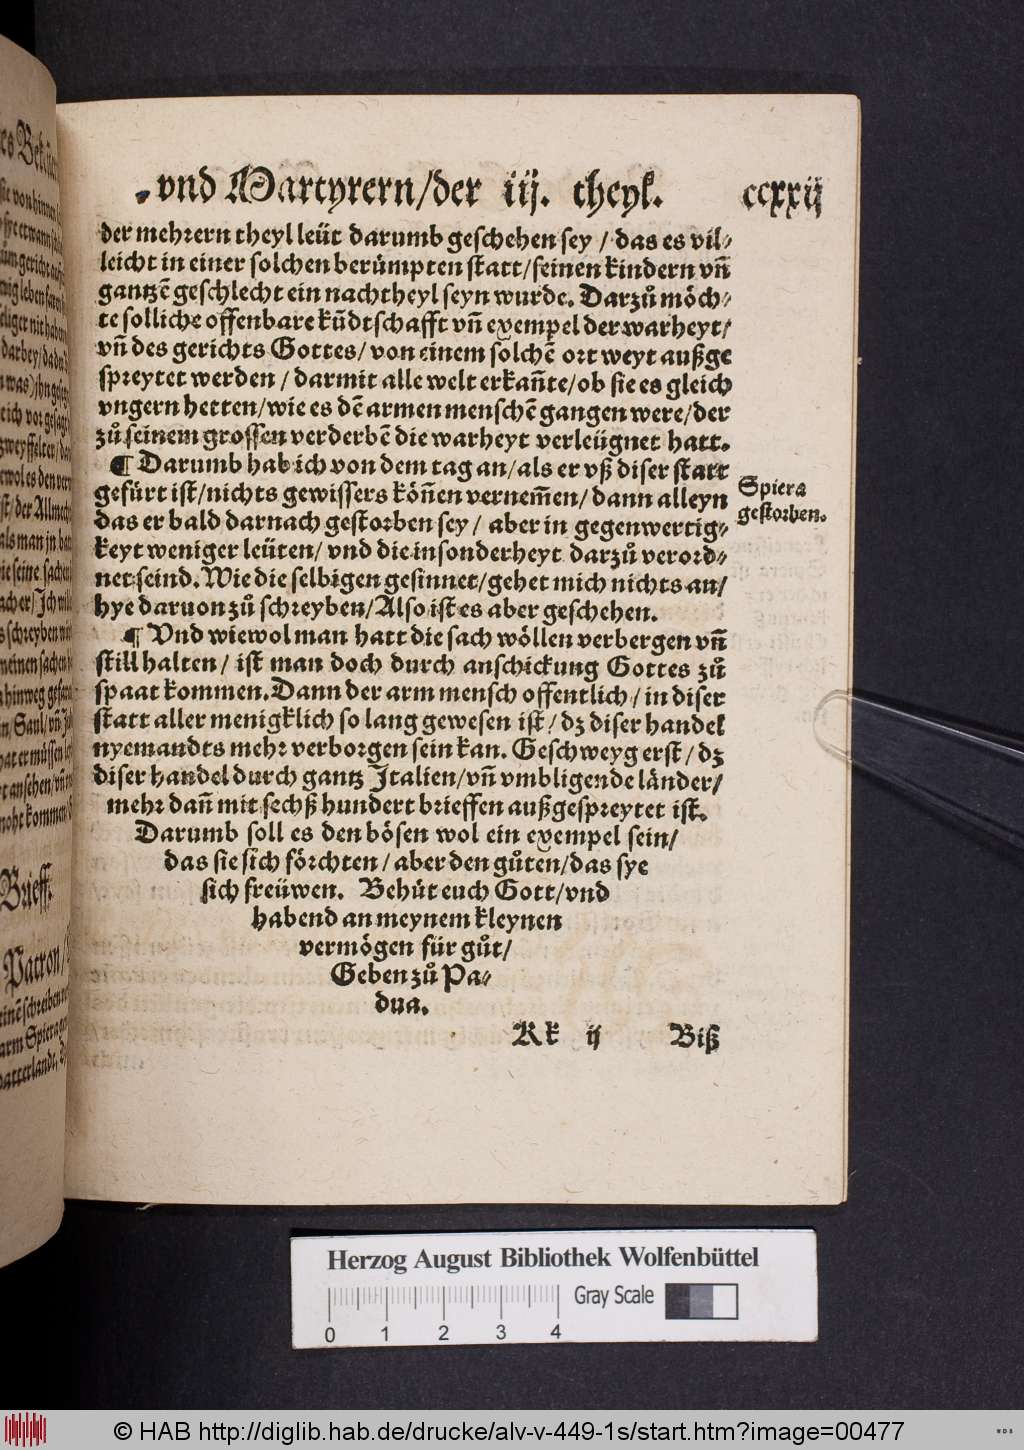 vnd Martyrern/der iij. theyl. ccxxij
der mehrern theyl leüt darumb geschehen sey / das es vil-
leicht in einer solchen berümpten statt/seinen kindern vñ
gantzẽ geschlecht ein nachtheyl seyn wurde. Darzů möch-
te solliche offenbare kũdtschafft vñ exempel der warheyt/
vñ des gerichts Gottes/ von einem solchẽ ort weyt außge
spreytet werden / darmit alle welt erkañte/ob sie es gleich
vngern hetten/wie es dẽ armen menschẽ gangen were/der
zů seinem grossen verderbẽ die warheyt verleügnet hatt.
¶ Darumb hab ich von dem tag an/als er vß diser statt
gefürt ist/nichts gewissers köñen vernem̃en/ dann alleyn
das er bald darnach gestorben sey / aber in gegenwertig-
keyt weniger leüten/ vnd die insonderheyt darzů verord-
net seind. Wie die selbigen gesinnet/gehet mich nichts an/
hye daruon zů schreyben/Also ist es aber geschehen.
Spiera
gestorben.
¶ Vnd wiewol man hatt die sach wöllen verbergen vñ
still halten/ ist man doch durch anschickung Gottes zů
spaat kommen. Dann der arm mensch offentlich/ in diser
statt aller menigklich so lang gewesen ist/ dz diser handel
nyemandts mehr verborgen sein kan. Geschweyg erst/ dz
diser handel durch gantz Italien/vñ vmbligende länder/
mehr dañ mit sechß hundert brieffen außgespreytet ist.
Darumb soll es den bösen wol ein exempel sein/
das sie sich förchten/ aber den gůten/das sye
sich freüwen. Behüt euch Gott/vnd
habend an meynem kleynen
vermögen für gůt/
Geben zů Pa-
dua.
Kk ij Biß
Brieff.
Patron/
Herzog August Bibliothek Wolfenbüttel
Gray Scale
0 1 2 3 4
© HAB http://diglib.hab.de/drucke/alv-v-449-1s/start.htm?image=00477